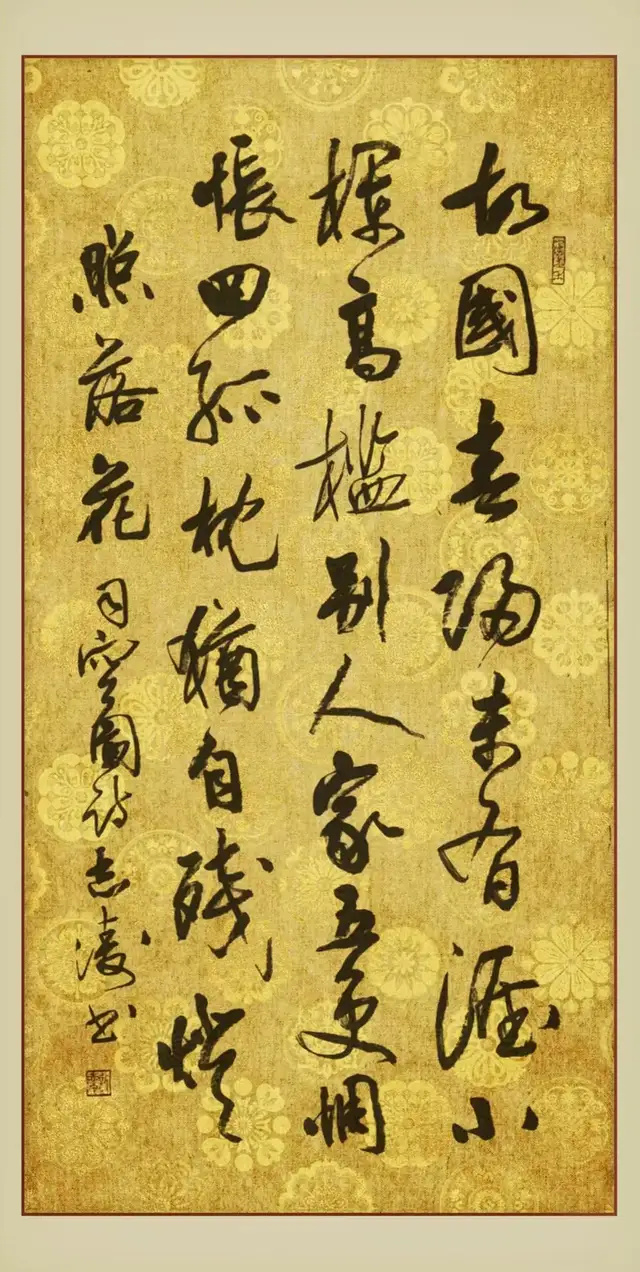 故國春歸未有涯小
欄高檻別人家五更惆
悵回孤枕猶自殘燈
照落花 司空圖詩 書